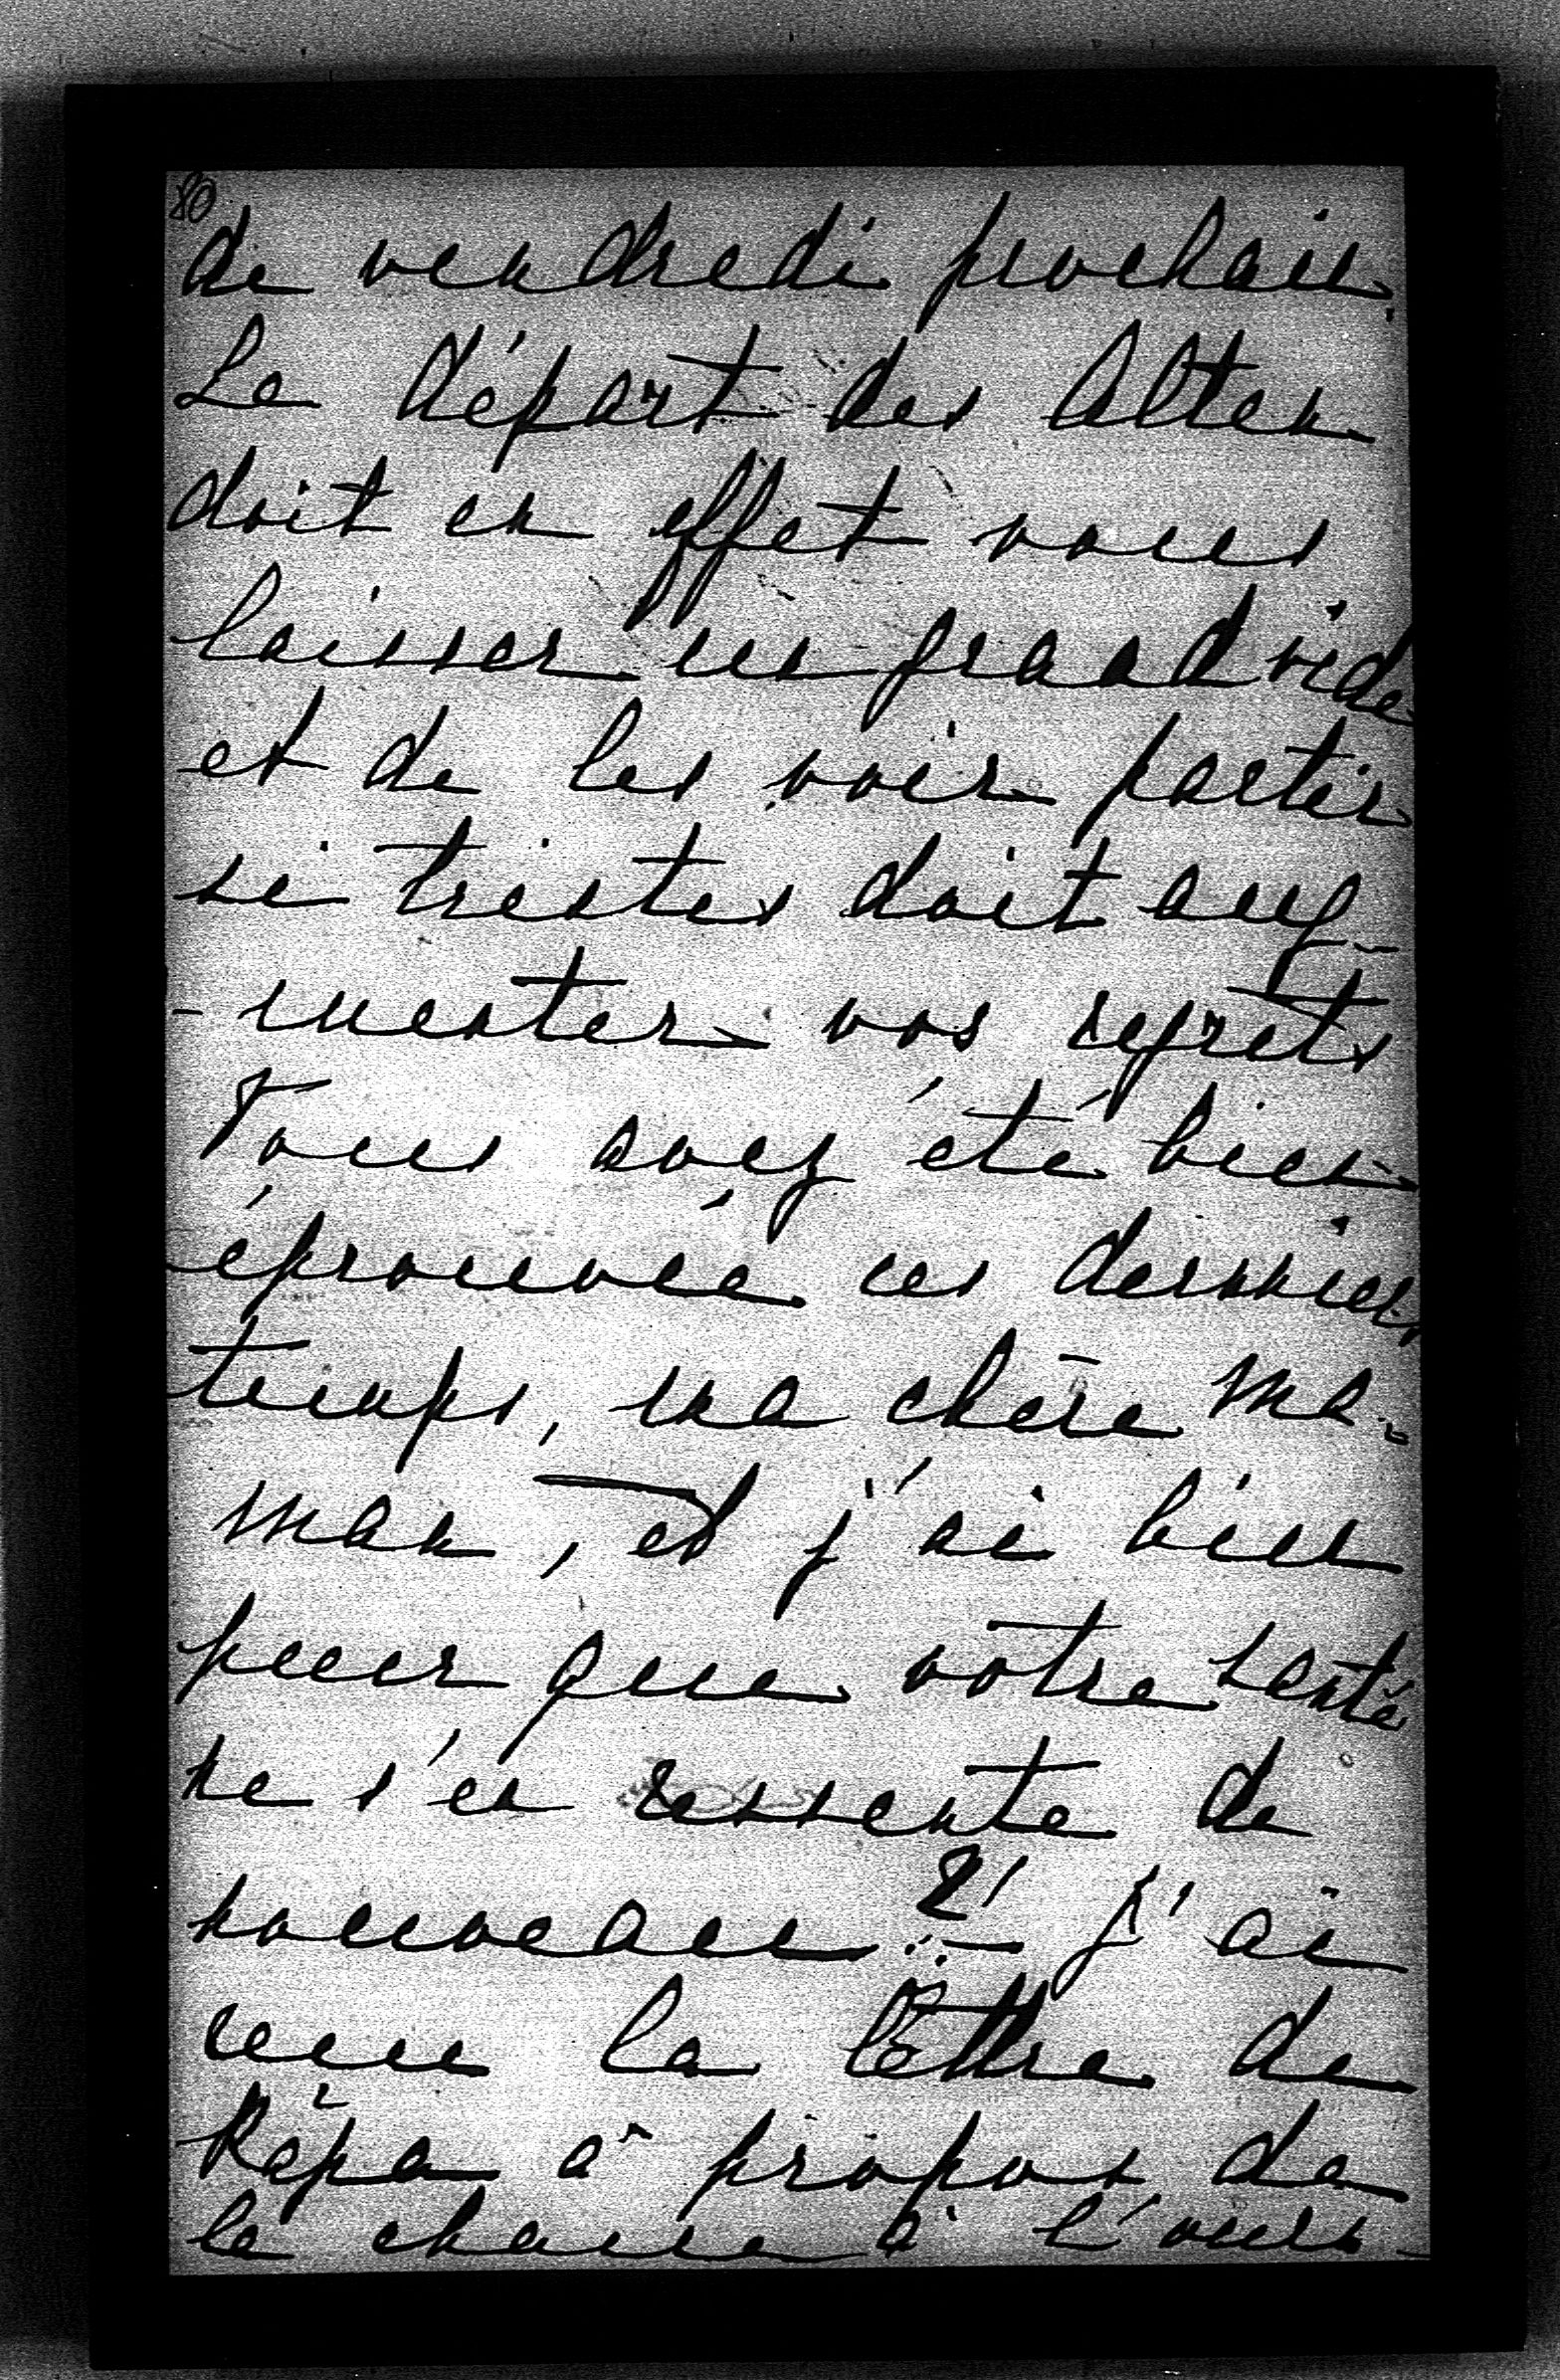 80
de vendredi prochain.
Le départ des Alten
doit en effet vous
laisser un grand vide
et de les voir partir
si tristes doit aug-
-menter vos regrets
Vous avez été bien
éprouvée ces derniers
temps, ma chère Ma-
man, et j'ai bien
peur que votre santé
ne s'en ressente de
nouveau ! — J'ai
reçu la lettre de
Papa à propos de
la chasse à l'ours